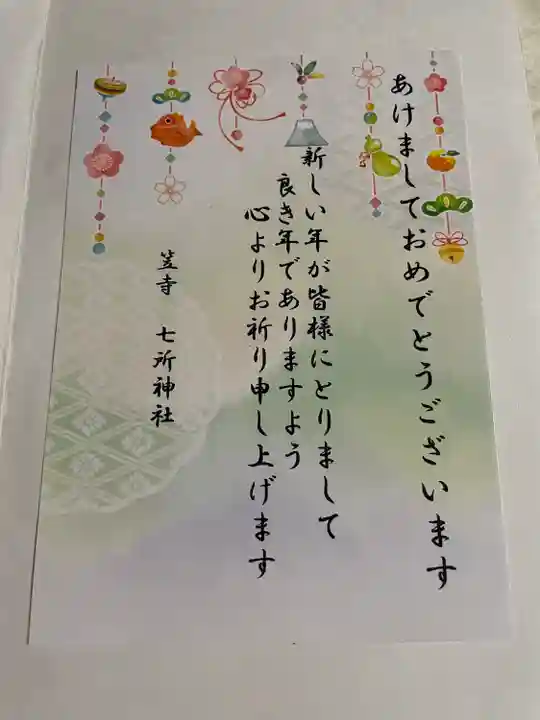 あけましておめでとうございます
新しい年が皆様にとりまして
良き年でありますよう
心よりお祈り申し上げます
笠寺 七所神社